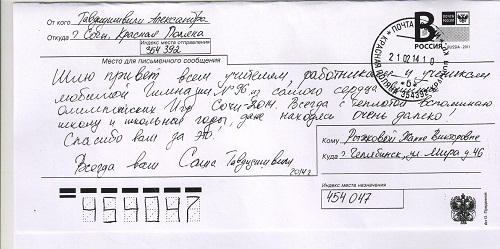 От кого Тавдишвили Александра
Откуда г. Сочи, Красная Поляна
Индекс места отправления
354 392
Место для письменного сообщения
Шлю привет всем учителям, работникам и ученикам
любимой Гимназии №96 из самого сердца
Олимпийских Игр Сочи-2014. Всегда с теплотой вспоминаю
школу и школьные годы, даже находясь очень далеко!
Спасибо вам за это!
Всегда ваш Саша
2014 г.
ПОЧТА
КРАСНАЯ ПОЛЯНА
21 02 14 10
354392
B
РОССИЯ
RUSSIA · 2011
Кому Рыжковой Жанне Викторовне
Куда г. Челябинск, ул. Мира д 46
Индекс места назначения
454 047
454047